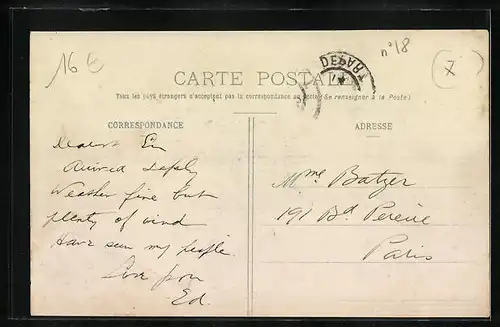 16 €
n° 18
7
DEPART
CARTE POSTALE
Tous les pays étrangers n'acceptent pas la correspondance au recto (Se renseigner à la Poste)
CORRESPONDANCE
ADRESSE
Dearest Em
Arrived safely
Weather fine but
plenty of wind
Have seen my people.
Love from
Ed.
Mme Batzer
191 Bd Pereire
Paris